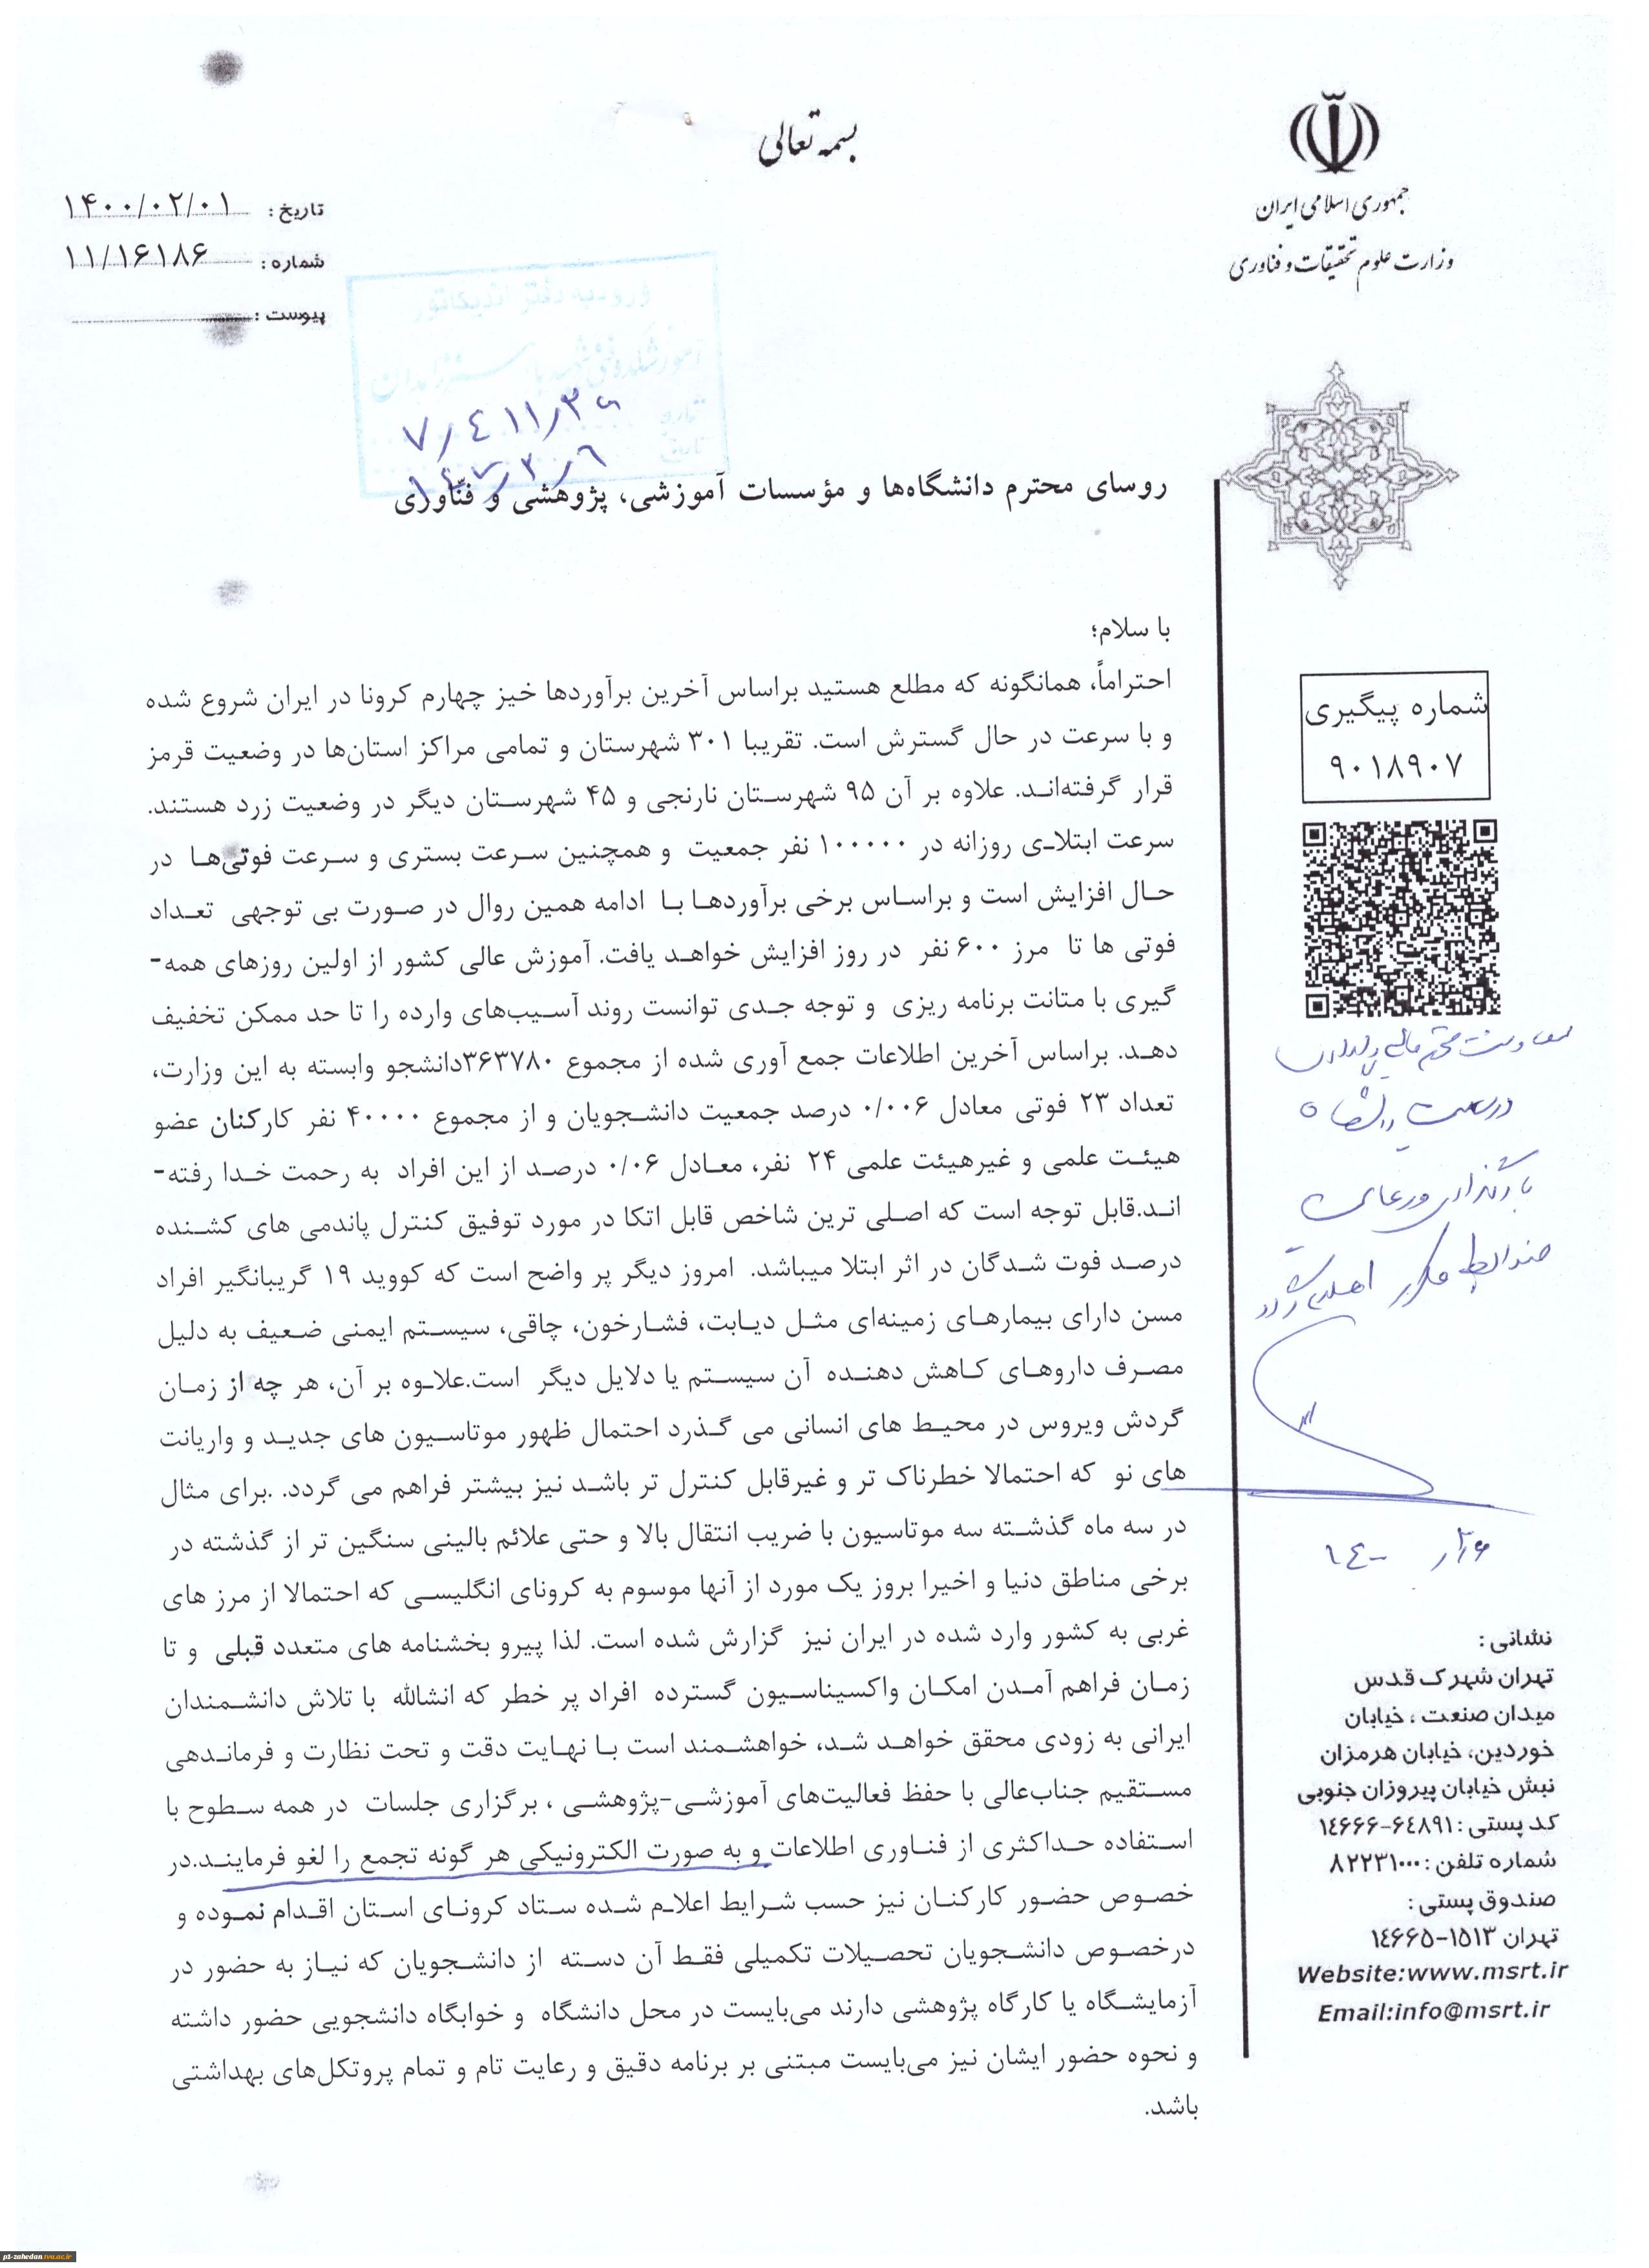 بسمه تعالی
جمهوری اسلامی ایران
وزارت علوم تحقیقات و فناوری
تاریخ: ۱۴۰۰/۰۲/۰۱
شماره: ۱۱/۱۶۱۸۶
پیوست:
ورود به دفتر اندیکاتور
روسای محترم دانشگاه‌ها و مؤسسات آموزشی، پژوهشی و فنّاوری
با سلام؛
احتراماً، همانگونه که مطلع هستید براساس آخرین برآوردها خیز چهارم کرونا در ایران شروع شده
و با سرعت در حال گسترش است. تقریبا ۳۰۱ شهرستان و تمامی مراکز استان‌ها در وضعیت قرمز
قرار گرفته‌اند. علاوه بر آن ۹۵ شهرستان نارنجی و ۴۵ شهرستان دیگر در وضعیت زرد هستند.
سرعت ابتلای روزانه در ۱۰۰۰۰۰ نفر جمعیت و همچنین سرعت بستری و سرعت فوتی‌ها در
حال افزایش است و براساس برخی برآوردها با ادامه همین روال در صورت بی توجهی تعداد
فوتی ها تا مرز ۶۰۰ نفر در روز افزایش خواهد یافت. آموزش عالی کشور از اولین روزهای همه-
گیری با متانت برنامه ریزی و توجه جدی توانست روند آسیب‌های وارده را تا حد ممکن تخفیف
دهد. براساس آخرین اطلاعات جمع آوری شده از مجموع ۳۶۳۷۸۰دانشجو وابسته به این وزارت،
تعداد ۲۳ فوتی معادل ۰/۰۰۶ درصد جمعیت دانشجویان و از مجموع ۴۰۰۰۰ نفر کارکنان عضو
هیئت علمی و غیرهیئت علمی ۲۴ نفر، معادل ۰/۰۶ درصد از این افراد به رحمت خدا رفته-
اند.قابل توجه است که اصلی ترین شاخص قابل اتکا در مورد توفیق کنترل پاندمی های کشنده
درصد فوت شدگان در اثر ابتلا میباشد. امروز دیگر پر واضح است که کووید ۱۹ گریبانگیر افراد
مسن دارای بیمارهای زمینه‌ای مثل دیابت، فشارخون، چاقی، سیستم ایمنی ضعیف به دلیل
مصرف داروهای کاهش دهنده آن سیستم یا دلایل دیگر است.علاوه بر آن، هر چه از زمان
گردش ویروس در محیط های انسانی می گذرد احتمال ظهور موتاسیون های جدید و واریانت
های نو که احتمالا خطرناک تر و غیرقابل کنترل تر باشد نیز بیشتر فراهم می گردد. .برای مثال
در سه ماه گذشته سه موتاسیون با ضریب انتقال بالا و حتی علائم بالینی سنگین تر از گذشته در
برخی مناطق دنیا و اخیرا بروز یک مورد از آنها موسوم به کرونای انگلیسی که احتمالا از مرز های
غربی به کشور وارد شده در ایران نیز گزارش شده است. لذا پیرو بخشنامه های متعدد قبلی و تا
زمان فراهم آمدن امکان واکسیناسیون گسترده افراد پر خطر که انشالله با تلاش دانشمندان
ایرانی به زودی محقق خواهد شد، خواهشمند است با نهایت دقت و تحت نظارت و فرماندهی
مستقیم جناب‌عالی با حفظ فعالیت‌های آموزشی-پژوهشی ، برگزاری جلسات در همه سطوح با
استفاده حداکثری از فناوری اطلاعات و به صورت الکترونیکی هر گونه تجمع را لغو فرمایند.در
خصوص حضور کارکنان نیز حسب شرایط اعلام شده ستاد کرونای استان اقدام نموده و
درخصوص دانشجویان تحصیلات تکمیلی فقط آن دسته از دانشجویان که نیاز به حضور در
آزمایشگاه یا کارگاه پژوهشی دارند می‌بایست در محل دانشگاه و خوابگاه دانشجویی حضور داشته
و نحوه حضور ایشان نیز می‌بایست مبتنی بر برنامه دقیق و رعایت تام و تمام پروتکل‌های بهداشتی
باشد.
شماره پیگیری
۹۰۱۸۹۰۷
نشانی :
تهران شهرک قدس
میدان صنعت ، خیابان
خوردین، خیابان هرمزان
نبش خیابان پیروزان جنوبی
کد پستی : ۱٤۶۶۶-۶٤۸۹۱
شماره تلفن : ۸۲۲۳۱۰۰۰
صندوق پستی :
تهران ۱۵۱۳-۱٤۶۶۵
Website:www.msrt.ir
Email:info@msrt.ir
p1-zahedan.tvu.ac.ir